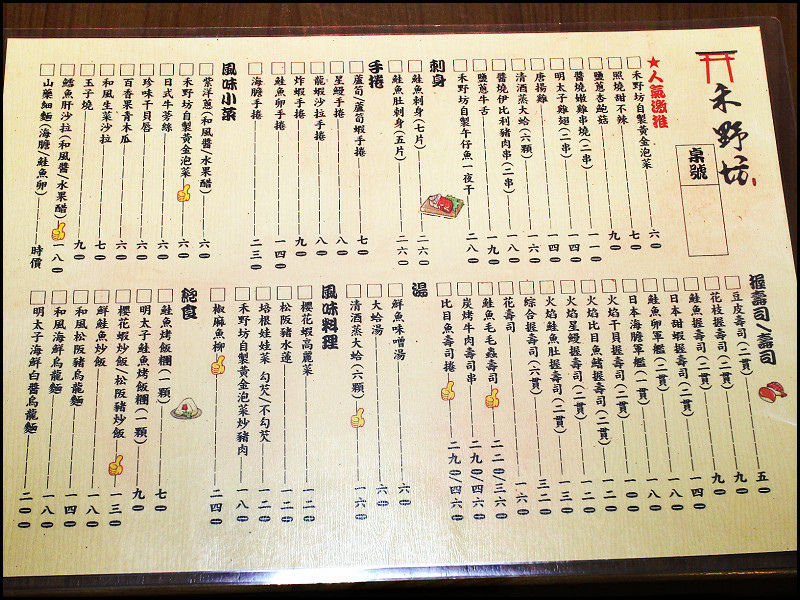 禾野坊
桌號
★人氣激推
禾野坊自製黃金泡菜 六〇
照燒甜不辣 七〇
鹽蔥杏鮑菇 九〇
醬燒嫩雞串燒(二串) 一一〇
明太子雞翅(二串) 一四〇
唐揚雞 一四〇
清酒蒸大蛤(六顆) 一六〇
醬燒伊比利豬肉串(二串) 一八〇
鹽蔥牛舌 一九〇
禾野坊自製午仔魚一夜干 二八〇
刺身
鮭魚刺身(七片) 二六〇
鮭魚肚刺身(五片) 二六〇
手捲
蘆筍/蘆筍蝦手捲 七〇
星鰻手捲 八〇
龍蝦沙拉手捲 八〇
炸蝦手捲 九〇
鮭魚卵手捲 一四〇
海膽手捲 二三〇
風味小菜
紫洋蔥(和風醬/水果醋) 六〇
禾野坊自製黃金泡菜 六〇
日式牛蒡絲 六〇
珍味干貝唇 六〇
百香果青木瓜 六〇
和風生菜沙拉 七〇
玉子燒 九〇
鱈魚肝沙拉(和風醬/水果醋) 一八〇
山藥細麵(海膽/鮭魚卵) 時價
握壽司/壽司
豆皮壽司(二貫) 五〇
花枝握壽司(二貫) 九〇
鮭魚握壽司(二貫) 九〇
日本甜蝦握壽司(二貫) 一四〇
鮭魚卵軍艦(二貫) 一八〇
日本海膽軍艦(一貫) 一八〇
火焰干貝握壽司(二貫) 一〇〇
火焰比目魚鰭握壽司(二貫) 一二〇
火焰星鰻握壽司(二貫) 一二〇
火焰鮭魚肚握壽司(二貫) 一三〇
綜合握壽司(六貫) 三二〇
花壽司 一六〇
鮭魚毛毛蟲壽司 二二〇/三六〇
炭烤牛肉壽司串 二九〇/四六〇
比目魚壽司捲 二九〇/四六〇
湯
鮮魚味噌湯 六〇
大蛤湯 六〇
清酒蒸大蛤(六顆) 一六〇
風味料理
櫻花蝦高麗菜 一二〇
松阪豬水蓮 一二〇
培根娃娃菜 勾芡/不勾芡 一二〇
禾野坊自製黃金泡菜炒豬肉 一八〇
椒麻魚柳 二四〇
飽食
鮭魚烤飯糰(一顆) 七〇
明太子鮭魚烤飯糰(一顆) 九〇
櫻花蝦炒飯/松阪豬炒飯 一三〇
鮮鮭魚炒飯 一八〇
和風松阪豬烏龍麵 一四〇
和風海鮮烏龍麵 一八〇
明太子海鮮白醬烏龍麵 二〇〇